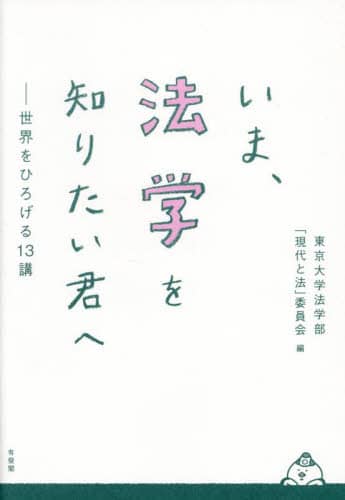 いま、
法学を
知りたい君へ
──世界をひろげる13講
東京大学法学部
「現代と法」委員会 編
有斐閣